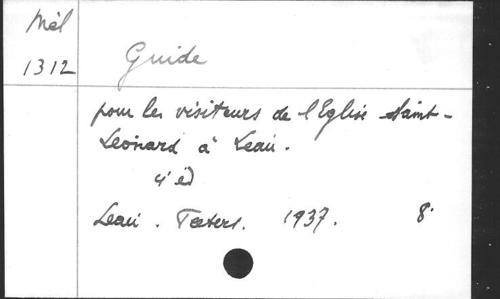 Mél
1312
Guide
pour les visiteurs de l'Eglise Saint-
Léonard à Léau.
4' éd
Léau. Peeters. 1937. 8°